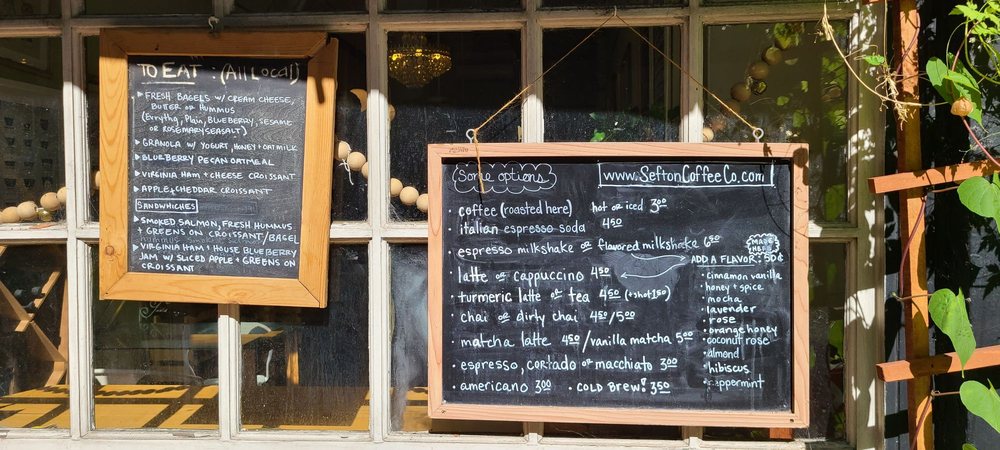 TO EAT : (All Local)
▸ FRESH BAGELS W/ CREAM CHEESE,
BUTTER OR HUMMUS
(Evrythg, Plain, BLUEBERRY, SESAME
OR ROSEMARY SEASALT)
▸ GRANOLA W/ YOGURT, HONEY + OATMILK
▸ BLUEBERRY PECAN OATMEAL
▸ VIRGINIA HAM + CHEESE CROISSANT
▸ APPLE + CHEDDAR CROISSANT
SANDWHICHES
▸ SMOKED SALMON, FRESH HUMMUS
+ GREENS ON CROISSANT/BAGEL
▸ VIRGINIA HAM + HOUSE BLUEBERRY
JAM W/ SLICED APPLE + GREENS ON
CROISSANT
Some options
www.SeftonCoffeeCo.com
• coffee (roasted here) hot or iced 3.00
• italian espresso soda 4.50
espresso milkshake or flavored milkshake 6.50
MADE HERE
ADD A FLAVOR: 50¢
• latte or cappuccino 4.50
• turmeric latte or tea 4.50 (+shot 1.50)
• chai or dirty chai 4.50/5.00
• matcha latte 4.50/vanilla matcha 5.00
• espresso, cortado or macchiato 3.00
• americano 3.00 • COLD BREW! 3.50
• cinnamon vanilla
• honey + spice
• mocha
• lavender
• rose
• orange honey
• coconut rose
• almond
• hibiscus
• peppermint